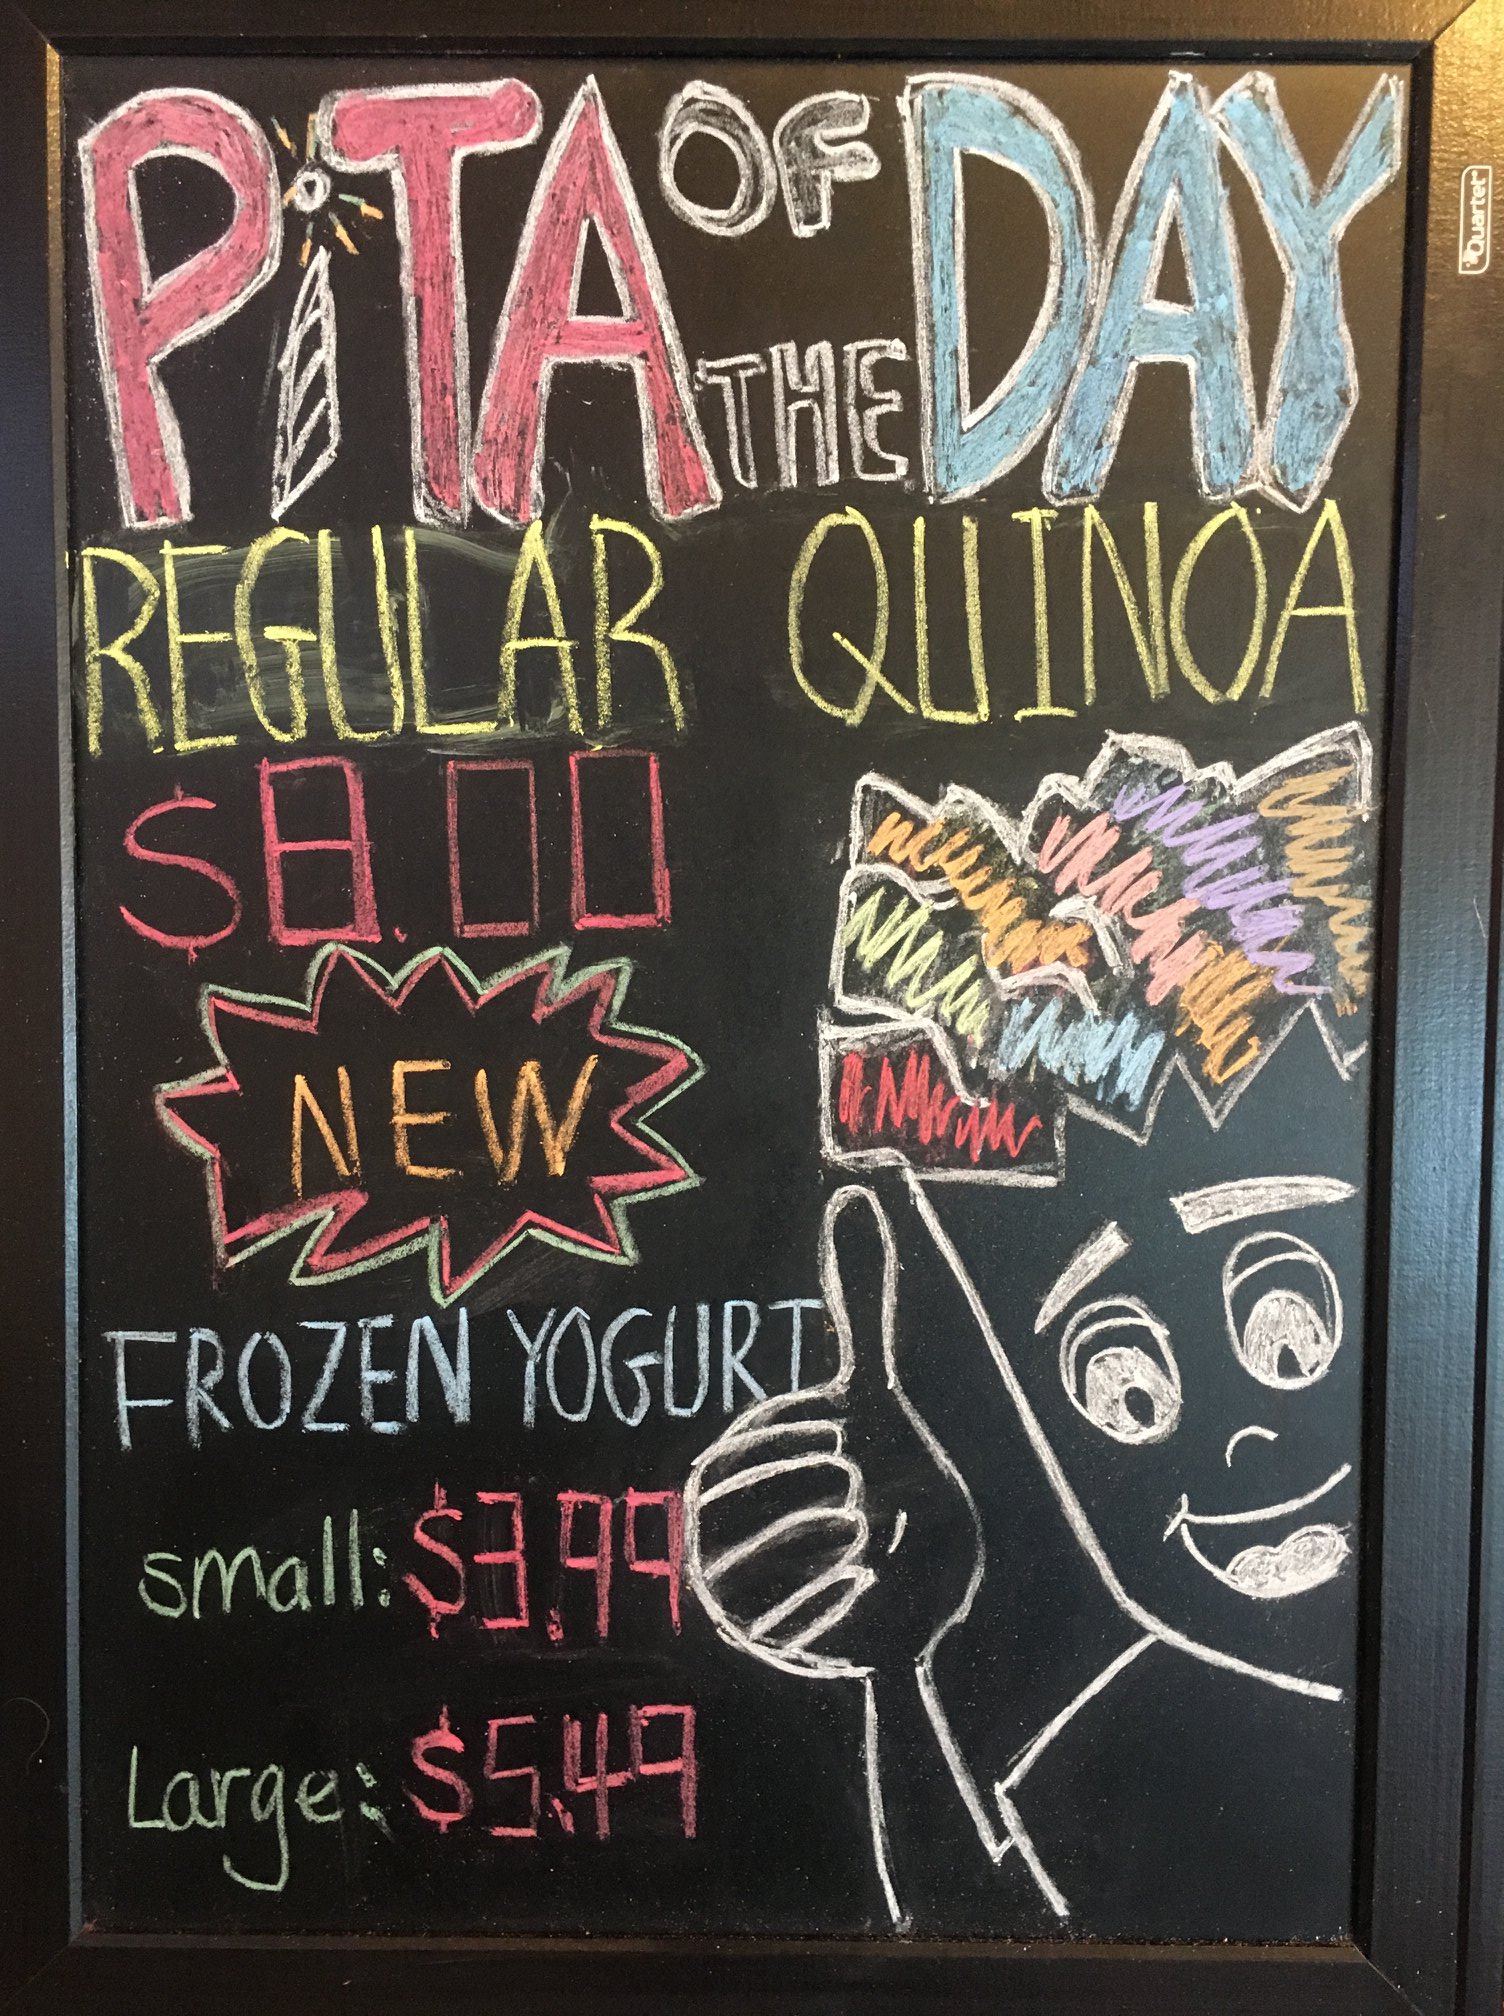 PiTA OF THE DAY
REGULAR QUINOA
$8.00
NEW
FROZEN YOGURT
small: $3.99
Large: $5.49
Quartet